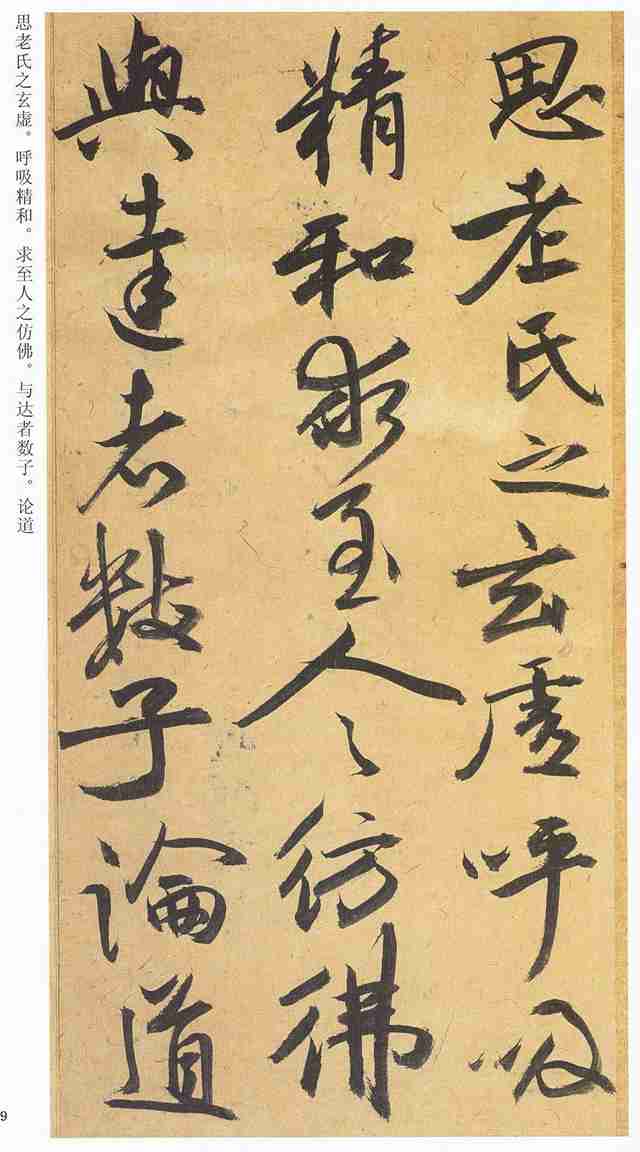 思老氏之玄虚呼吸
精和求至人之彷彿
與達者數子論道
思老氏之玄虚。呼吸精和。求至人之仿佛。与达者数子。论道
9